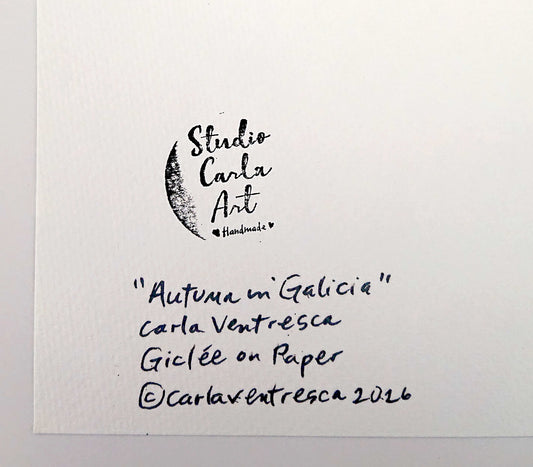 Studio
Carla
Art
Handmade
"Autumn in Galicia"
Carla Ventresca
Giclée on Paper
©carlaventresca 2026